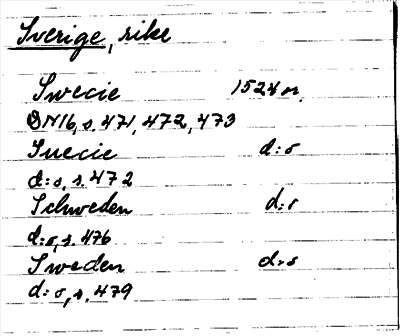 Sverige, rike
Swecie 1524 or.
BN16, s. 471, 472, 473
Suecie d:o
d:o, s. 472
Schweden d:o
d:o, s. 476
Sweden d:o
d:o, s. 479